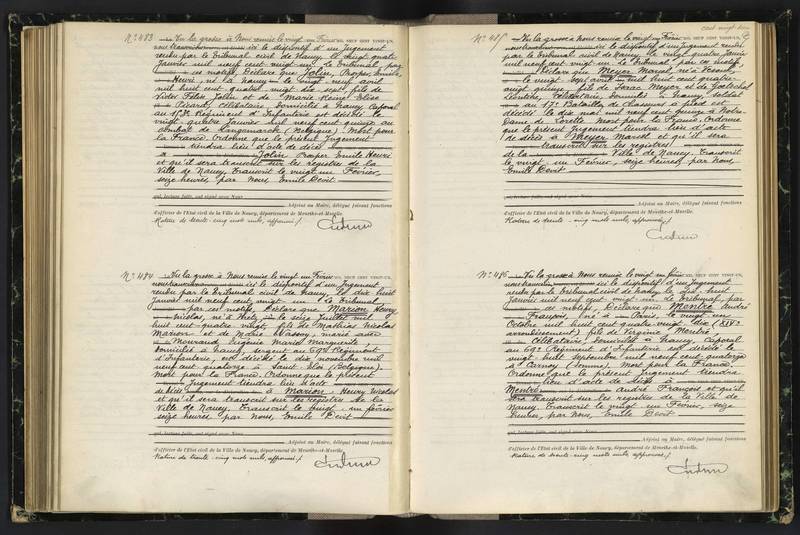 N° 483 Vu la grosse à Nous remise le vingt un Février MIL NEUF CENT VINGT-UN,
ici le dispositif d'un Jugement
rendu par le Tribunal civil de Nancy le vingt quatre
Janvier mil neuf cent vingt-un. Le Tribunal, par
ces motifs, Déclare que Jolin, Prosper Emile
Henri, né à Nancy le vingt neuf avril
mil huit cent quatre vingt dix sept, fils de
Victor Félix Jolin et de Marie Reine Elise
Picard, Célibataire, domicilié à Nancy, Caporal
au Régiment d'Infanterie est décédé le
vingt quatre Janvier mil neuf cent quinze au
combat de Langemarck (Belgique). Mort pour
la France. Ordonne que le présent Jugement
tiendra lieu d'acte de décès
à Jolin Prosper Emile Henri
et qu'il sera transcrit sur les registres de la
Ville de Nancy. Transcrit le vingt un Février,
seize heures, par Nous, Emile Devit
qui, lecture faite, ont signé avec Nous
Adjoint au Maire, délégué faisant fonctions
d'officier de l'Etat civil de la Ville de Nancy, département de Meurthe-et-Moselle.
Rature de trente-cinq mots nuls, approuvé./.
N° 484 Vu la grosse à Nous remise le vingt un Février MIL NEUF CENT VINGT-UN,
ici le dispositif d'un Jugement
rendu par le Tribunal civil de Nancy, le dix huit
Janvier mil neuf cent vingt-un. Le Tribunal
par ces motifs, Déclare que Marson, Henry
Nicolas, né à Metz, le Juillet mil
huit cent quatre vingt, fils de Mathias Nicolas
Marson et de Marie Masson, marié avec
Mouraud Eugénie Marie Marguerite,
domicilié à Nancy, sergent au 69e Régiment
d'Infanterie, est décédé le dix novembre mil
neuf cent quatorze à Saint-Eloi (Belgique).
Mort pour la France. Ordonne que le présent
Jugement tiendra lieu d'acte
de décès à Marson Henry Nicolas
et qu'il sera transcrit sur les registres de la
Ville de Nancy. Transcrit le vingt-un février
seize heures par Nous, Emile Devit
qui, lecture faite, ont signé avec Nous
Adjoint au Maire, délégué faisant fonctions
d'officier de l'Etat civil de la Ville de Nancy, département de Meurthe-et-Moselle.
Rature de trente-cinq mots nuls, approuvé./.
cent vingt
N° 485 Vu la grosse à Nous remise le vingt un Février MIL NEUF CENT VINGT-UN,
ici le dispositif d'un Jugement rendu
par le Tribunal civil de Nancy, le vingt quatre Janvier
mil neuf cent vingt-un. Le Tribunal par ces motifs,
Déclare que Meyer Marcel, né à
le vingt sept août mil huit cent quatre-
vingt quinze, fils de Isaac Meyer et de Goetschel
Léontine, Célibataire, domicilié à Nancy, soldat
au 17e Bataillon de Chasseurs à pied est
décédé le dix mai mil neuf cent quinze à Notre-
Dame de Lorette. Mort pour la France. Ordonne
que le présent Jugement tiendra lieu d'acte
de décès à Meyer Marcel et qu'il sera
transcrit sur les registres
de la Ville de Nancy. Transcrit
le vingt-un Février, seize heures, par Nous,
Emile Devit
qui, lecture faite, ont signé avec Nous
Adjoint au Maire, délégué faisant fonctions
d'officier de l'Etat civil de la Ville de Nancy, département de Meurthe-et-Moselle.
Rature de trente-cinq mots nuls, approuvé./.
N° 486 Vu la grosse à Nous remise le vingt un février MIL NEUF CENT VINGT-UN,
ici le dispositif d'un Jugement
rendu par le Tribunal civil de Nancy le dix huit
Janvier mil neuf cent vingt-un. Le Tribunal, par
ces motifs, Déclare que Mentré André
François, né à Paris, le vingt-un
Octobre mil huit cent quatre vingt dix (XIVe
arrondissement) fils de Virginie Mentré
Célibataire, domicilié à Nancy, Caporal
au 69e Régiment d'Infanterie est décédé le
vingt-huit Septembre mil neuf cent quatorze
à Carnoy (Somme). Mort pour la France.
Ordonne que le présent Jugement tiendra
lieu d'acte de décès à
Mentré André François et qu'il
sera transcrit sur les registres de la Ville de
Nancy. Transcrit le vingt un Février, seize
heures, par Nous, Emile Devit
qui, lecture faite, ont signé avec Nous
Adjoint au Maire, délégué faisant fonctions
d'officier de l'Etat civil de la Ville de Nancy, département de Meurthe-et-Moselle.
Rature de trente-cinq mots nuls, approuvé./.